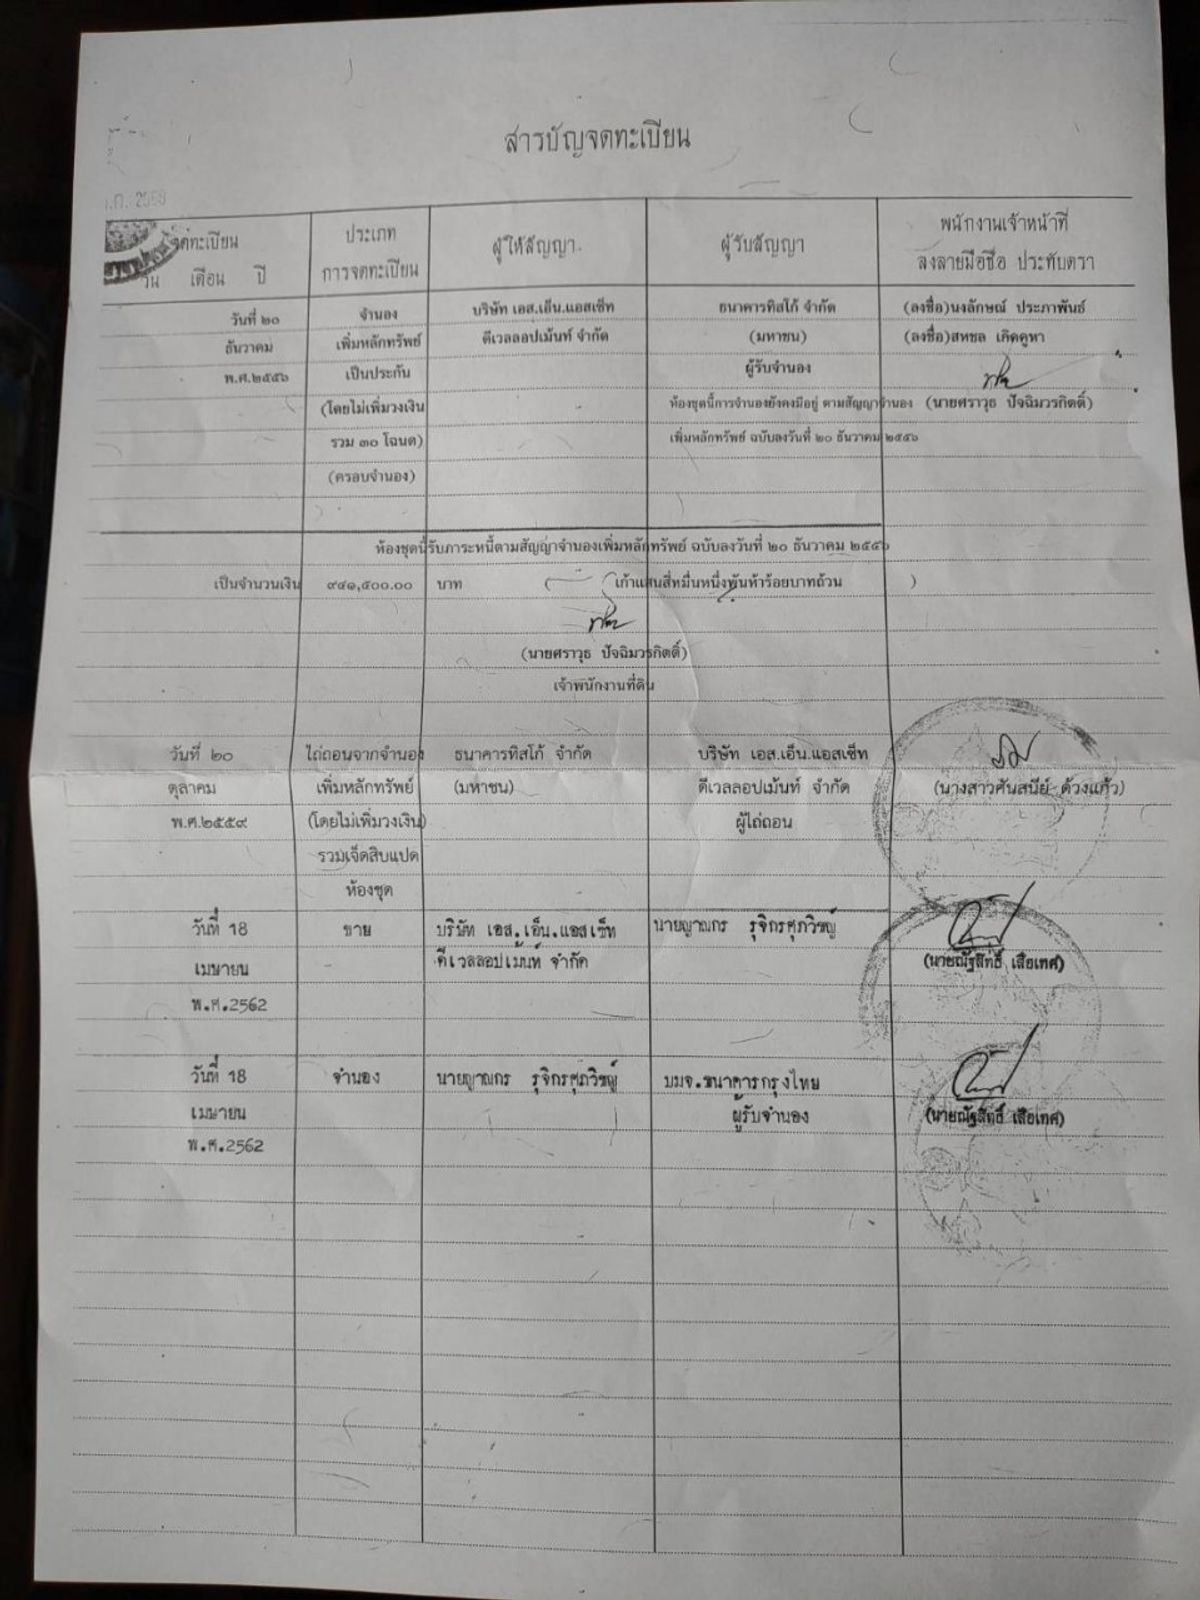 สารบัญจดทะเบียน
จดทะเบียน
วัน เดือน ปี
ประเภท
การจดทะเบียน
ผู้ให้สัญญา
ผู้รับสัญญา
พนักงานเจ้าหน้าที่
ลงลายมือชื่อ ประทับตรา
วันที่ ๒๐ จำนอง บริษัท เอส.เอ็น.แอสเซ็ท ธนาคารทิสโก้ จำกัด (ลงชื่อ)นงลักษณ์ ประภาพันธ์
ธันวาคม เพิ่มหลักทรัพย์ ดีเวลลอปเม้นท์ จำกัด (มหาชน) (ลงชื่อ)สหชล เกิดคูหา
พ.ศ.๒๕๕๖ เป็นประกัน ผู้รับจำนอง
(โดยไม่เพิ่มวงเงิน ห้องชุดนี้การจำนองยังคงมีอยู่ ตามสัญญาจำนอง (นายศราวุธ ปัจฉิมวรกิตติ์)
รวม ๓๐ โฉนด) เพิ่มหลักทรัพย์ ฉบับลงวันที่ ๒๐ ธันวาคม ๒๕๕๖
(ครอบจำนอง)
ห้องชุดนี้รับภาระหนี้ตามสัญญาจำนองเพิ่มหลักทรัพย์ ฉบับลงวันที่ ๒๐ ธันวาคม ๒๕๕๖
เป็นจำนวนเงิน ๙๔๑,๕๐๐.๐๐ บาท ( เก้าแสนสี่หมื่นหนึ่งพันห้าร้อยบาทถ้วน )
(นายศราวุธ ปัจฉิมวรกิตติ์)
เจ้าพนักงานที่ดิน
วันที่ ๒๐ ไถ่ถอนจากจำนอง ธนาคารทิสโก้ จำกัด บริษัท เอส.เอ็น.แอสเซ็ท
ตุลาคม เพิ่มหลักทรัพย์ (มหาชน) ดีเวลลอปเม้นท์ จำกัด (นางสาวศันสนีย์ ด้วงแก้ว)
พ.ศ.๒๕๕๙ (โดยไม่เพิ่มวงเงิน) ผู้ไถ่ถอน
รวมเจ็ดสิบแปด
ห้องชุด
วันที่ 18 ขาย บริษัท เอส.เอ็น.แอสเซ็ท นายญาณกร รุจิกรศุภวิชญ์
เมษายน ดีเวลลอปเม้นท์ จำกัด (นายณัฐสิทธิ์ เสือเทศ)
พ.ศ.2562
วันที่ 18 จำนอง นายญาณกร รุจิกรศุภวิชญ์ บมจ.ธนาคารกรุงไทย
เมษายน ผู้รับจำนอง (นายณัฐสิทธิ์ เสือเทศ)
พ.ศ.2562